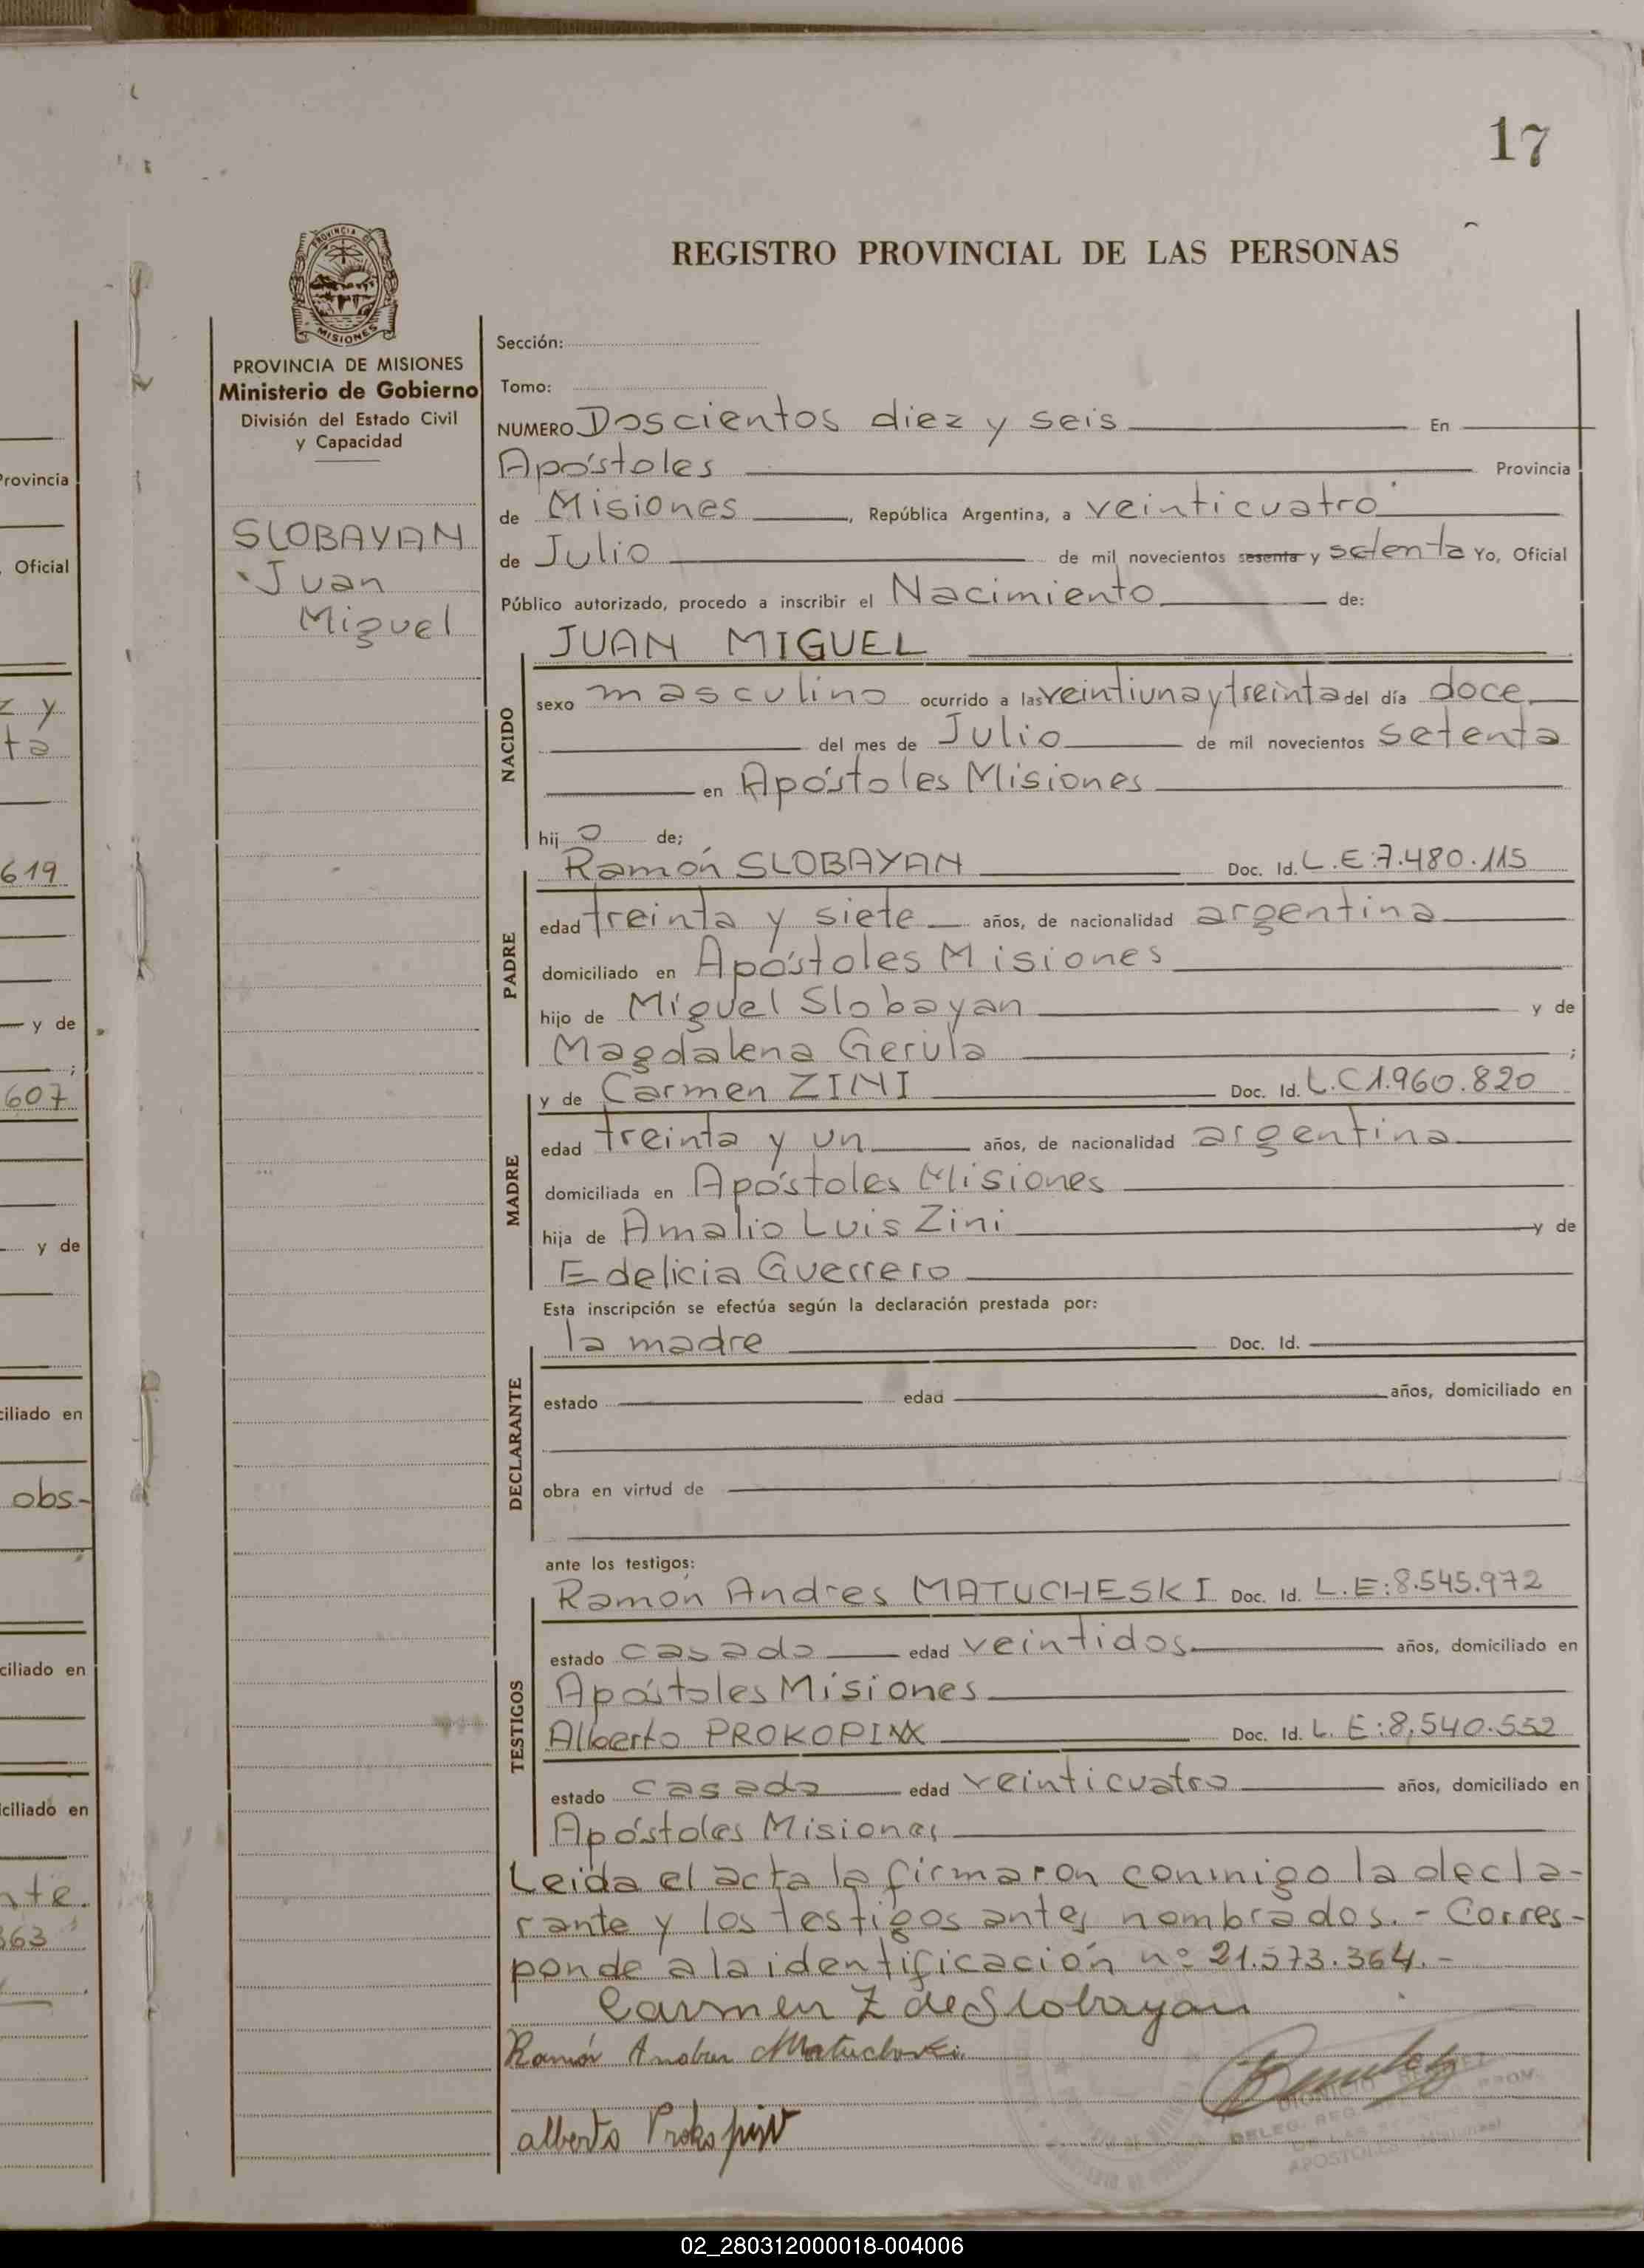 17
PROVINCIA DE
MISIONES
REGISTRO PROVINCIAL DE LAS PERSONAS
PROVINCIA DE MISIONES
Ministerio de Gobierno
División del Estado Civil
y Capacidad
SLOBAYAN
Juan
Miguel
Sección:
Tomo:
NUMERO Doscientos diez y seis En
Apóstoles Provincia
de Misiones, República Argentina, a veinticuatro
de Julio de mil novecientos sesenta y setenta Yo, Oficial
Público autorizado, procedo a inscribir el Nacimiento de:
JUAN MIGUEL
NACIDO
sexo masculino ocurrido a las veintiuna y treinta del día doce
del mes de Julio de mil novecientos setenta
en Apóstoles Misiones
hijo de;
PADRE
Ramón SLOBAYAN Doc. Id. L.E:7.480.115
edad treinta y siete años, de nacionalidad argentina
domiciliado en Apóstoles Misiones
hijo de Miguel Slobayan y de
Magdalena Gerula ;
MADRE
y de Carmen ZINI Doc. Id. L.C 1.960.820
edad treinta y un años, de nacionalidad argentina
domiciliada en Apóstoles Misiones
hija de Amalio Luis Zini y de
Edelicia Guerrero
Esta inscripción se efectúa según la declaración prestada por:
DECLARANTE
la madre Doc. Id.
estado edad años, domiciliado en
obra en virtud de
ante los testigos:
TESTIGOS
Ramón Andres MATUCHESKI Doc. Id. L.E:8.545.972
estado casado edad veintidos años, domiciliado en
Apóstoles Misiones
Alberto Doc. Id. L.E:8.540.552
estado casado edad veinticuatro años, domiciliado en
Apóstoles Misiones
Leida el acta la firmaron conmigo la decla-
rante y los testigos antes nombrados.- Corres-
ponde a la identificación nº 21.573.364.-
Carmen Z de Slobayan
Ramón
alberto
DELEG. REG.
APOSTOLES
Provincia
Oficial
z y
ta
619
y de
;
607
y de
ciliado en
obs-
ciliado en
ciliado en
nte.
363
02_280312000018-004006